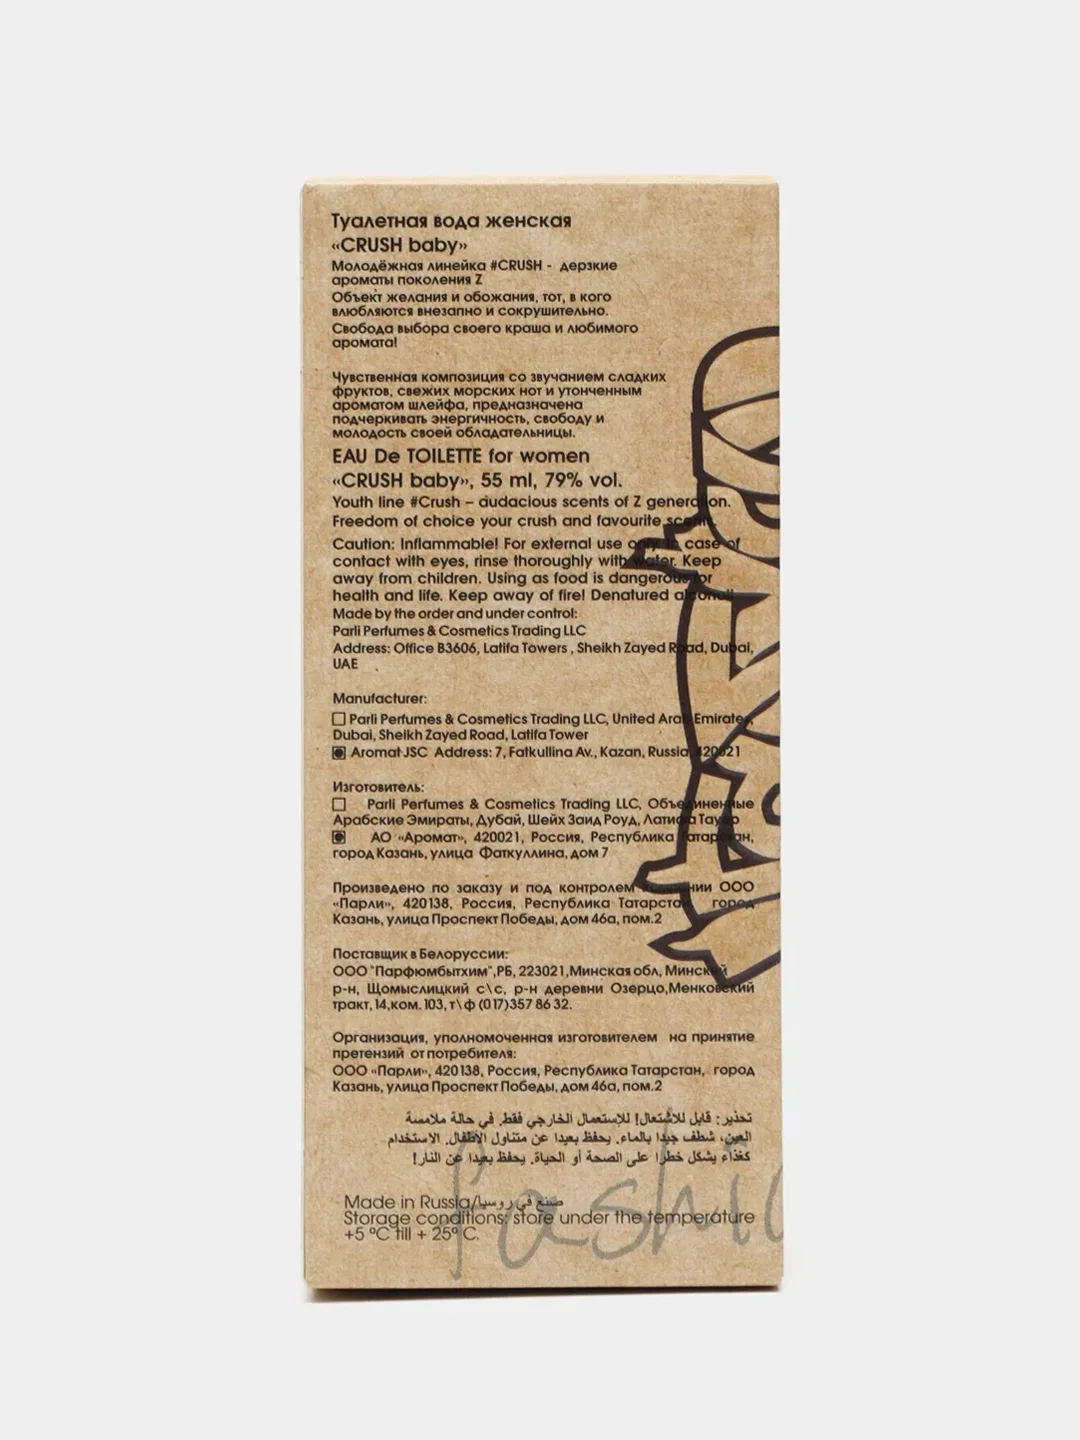 Туалетная вода женская
«CRUSH baby»
Молодёжная линейка #CRUSH - дерзкие
ароматы поколения Z
Объект желания и обожания, тот, в кого
влюбляются внезапно и сокрушительно.
Свобода выбора своего краша и любимого
аромата!
Чувственная композиция со звучанием сладких
фруктов, свежих морских нот и утонченным
ароматом шлейфа, предназначена
подчеркивать энергичность, свободу и
молодость своей обладательницы.
EAU De TOILETTE for women
«CRUSH baby», 55 ml, 79% vol.
Youth line #Crush – audacious scents of Z generation.
Freedom of choice your crush and favourite scent.
Caution: Inflammable! For external use only. In case of
contact with eyes, rinse thoroughly with water. Keep
away from children. Using as food is dangerous for
health and life. Keep away of fire! Denatured alcohol!
Made by the order and under control:
Parli Perfumes & Cosmetics Trading LLC
Address: Office B3606, Latifa Towers , Sheikh Zayed Road, Dubai,
UAE
Manufacturer:
Parli Perfumes & Cosmetics Trading LLC, United Arab Emirates,
Dubai, Sheikh Zayed Road, Latifa Tower
Aromat JSC Address: 7, Fatkullina Av., Kazan, Russia, 420021
Изготовитель:
Parli Perfumes & Cosmetics Trading LLC, Объединенные
Арабские Эмираты, Дубай, Шейх Заид Роуд, Латифа Тауэр
АО «Аромат», 420021, Россия, Республика Татарстан,
город Казань, улица Фаткуллина, дом 7
Произведено по заказу и под контролем компании ООО
«Парли», 420138, Россия, Республика Татарстан, город
Казань, улица Проспект Победы, дом 46а, пом.2
Поставщик в Белоруссии:
ООО "Парфюмбытхим",РБ, 223021,Минская обл, Минский
р-н, Щомыслицкий с\с, р-н деревни Озерцо,Менковский
тракт,14,ком. 103, т\ф (017)357 86 32.
Организация, уполномоченная изготовителем на принятие
претензий от потребителя:
ООО «Парли», 420138, Россия, Республика Татарстан, город
Казань, улица Проспект Победы, дом 46а, пом.2
تحذير: قابل للاشتعال! للإستعمال الخارجي فقط. في حالة ملامسة
العين، شطف جيدا بالماء. يحفظ بعيدا عن متناول الأطفال. الاستخدام
كغذاء يشكل خطرا على الصحة أو الحياة. يحفظ بعيدا عن النار!
Made in Russia/صنع في روسيا
Storage conditions: store under the temperature
+5 °C till + 25° C.
fashio